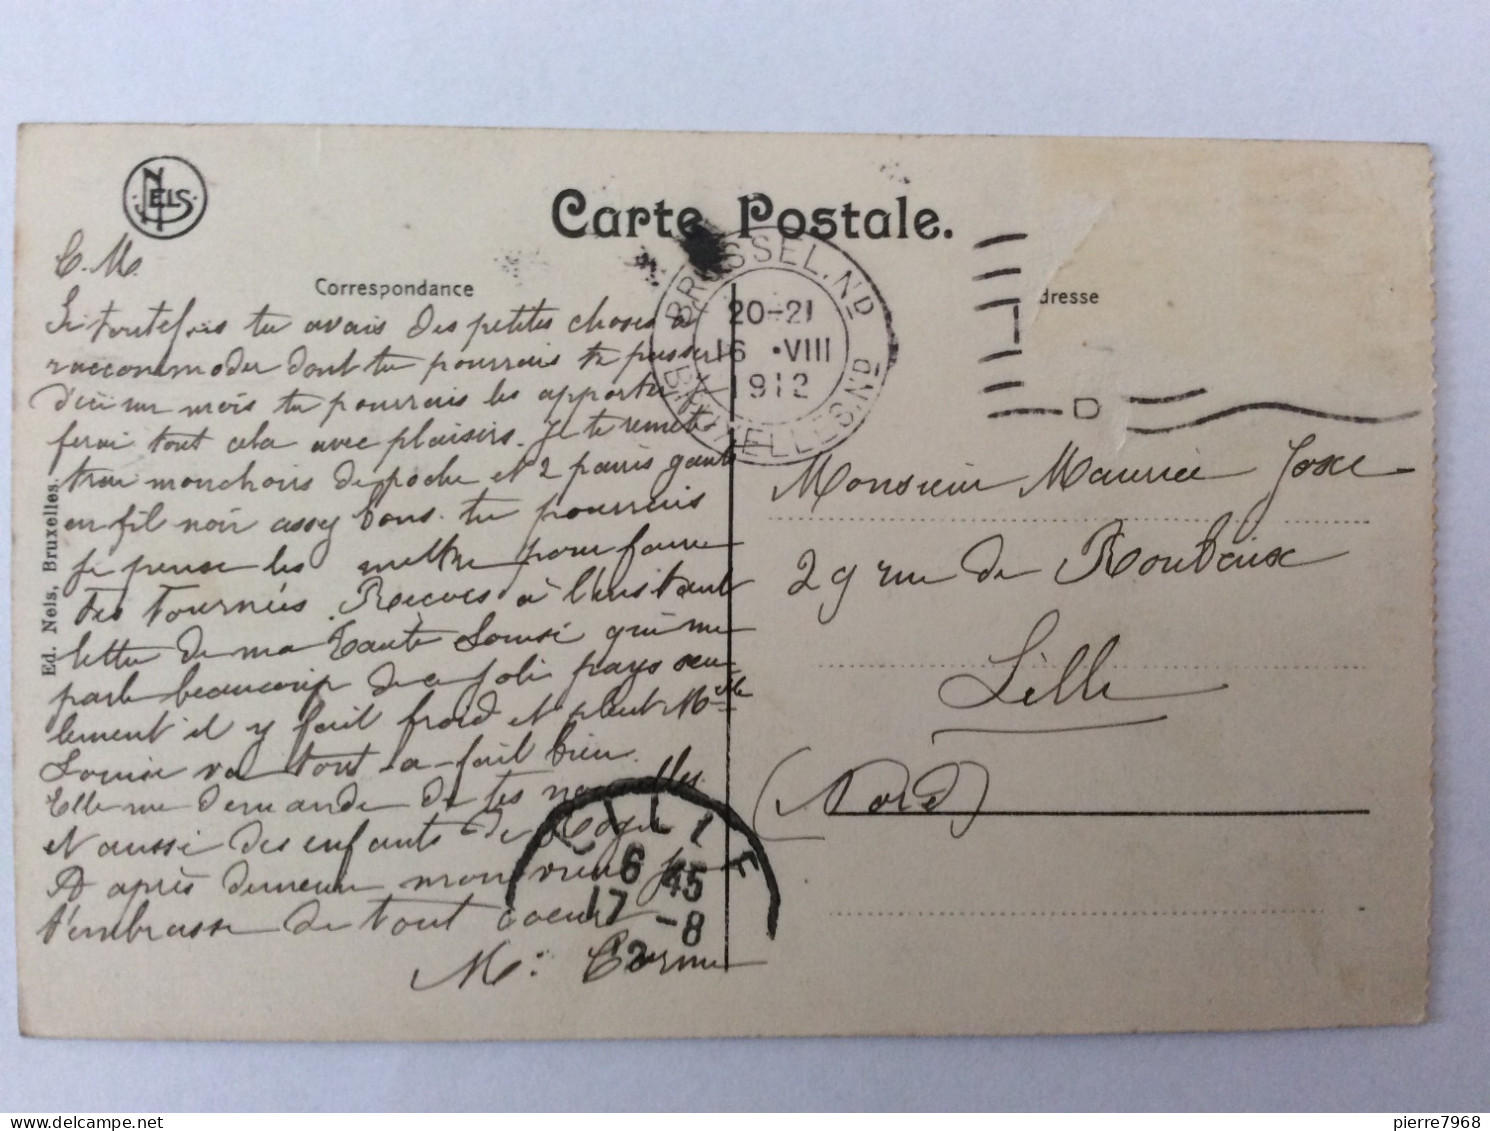 NELS
Carte Postale.
C. M.
Correspondance
dresse
BRUSSEL.ND
20-21
16 .VIII
1912
BRUXELLES.ND
D
Si toutefois tu avais des petites choses à
raccommoder dont tu pourrais te passer
d'ici un mois tu pourrais les apporter je
ferai tout cela avec plaisirs. Je te remet
trai mouchoirs de poche et 2 paires gants
en fil noir assez bons. tu pourrais
je pense les mettre pour faire
tes tournées. Recois à l'instant
lettre de ma Tante Louise qui me
parle beaucoup de ce joli pays seu
lement il y fait froid et pleut Melle
Louise va tout-a-fait bien.
Elle me demande de tes nouvelles
et aussi des enfants de Roger
A après demain mon vieux je
t'embrasse de tout coeur
M:
Monsieur Maurice
29 rue de Roubaix
Lille
(Nord)
LILLE
6 45
17 -8
12
Ed. Nels, Bruxelles.
pierre7968